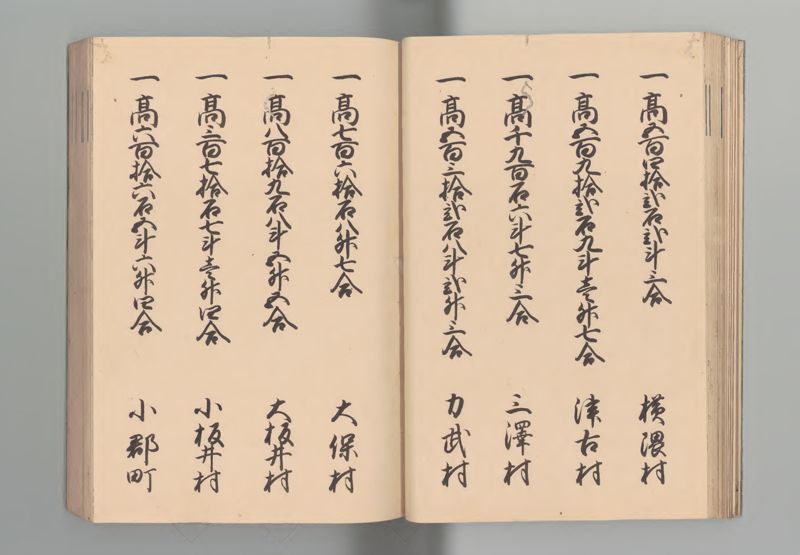 一高五百四拾弐石弐斗三合 横隈村
一高五百九拾弐石九斗壱升七合 津古村
一高千九百石六斗七升三合 三澤村
一高五百三拾弐石八斗弐升三合 力武村
一高七百六拾石八升七合 大保村
一高八百拾九石八斗五升五合 大板井村
一高三百七拾石七斗壱升四合 小板井村
一高六百拾六石五斗六升四合 小郡町